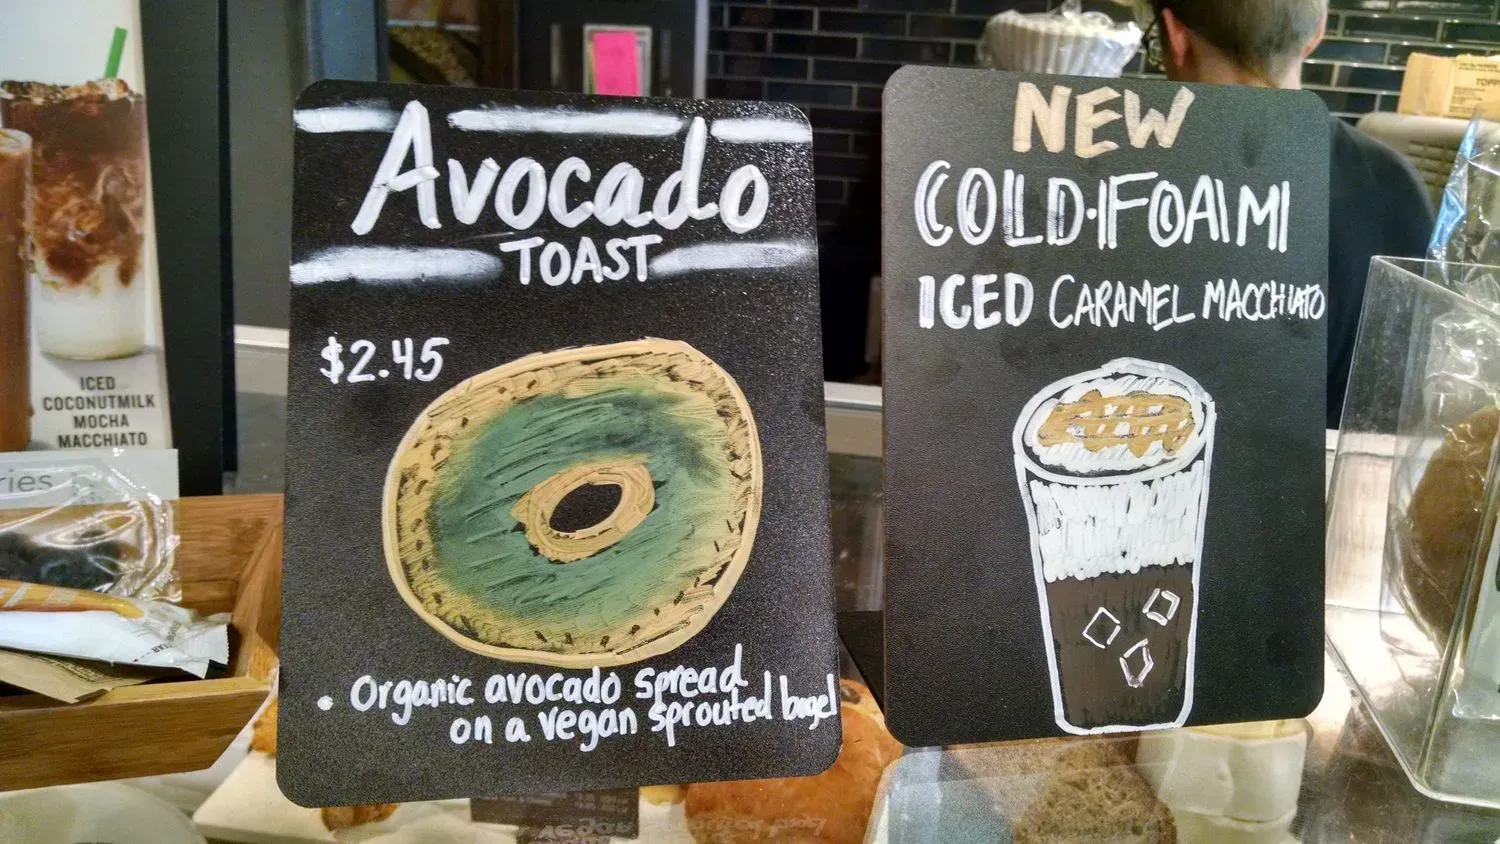 Avocado
TOAST
$2.45
• Organic avocado spread
on a vegan sprouted bagel
NEW
COLD·FOAM
ICED CARAMEL MACCHIATO
ICED
COCONUTMILK
MOCHA
MACCHIATO
ries
TOPP